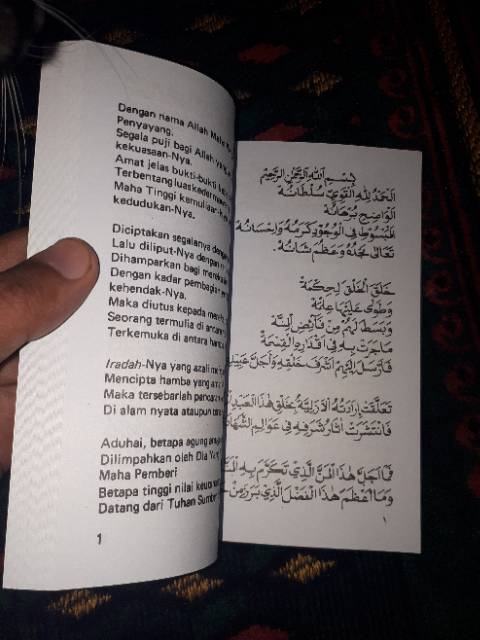 Dengan nama Allah Maha
Penyayang.
Segala puji bagi Allah yang
kekuasaan-Nya.
Amat jelas bukti-bukti
Terbentang luas kedermawanan
Maha Tinggi kemuliaan-Nya
kedudukan-Nya.
Diciptakan segalanya dengan
Lalu diliput-Nya dengan
Dihamparkan bagi mereka
Dengan kadar pembagian
kehendak-Nya.
Maka diutus kepada mereka
Seorang termulia di antara
Terkemuka di antara hamba
Iradah-Nya yang azali
Mencipta hamba yang
Maka tersebarlah pancaran
Di alam nyata ataupun
Aduhai, betapa agung
Dilimpahkan oleh Dia Yang
Maha Pemberi
Betapa tinggi nilai
Datang dari Tuhan Sumber
1
بِسْمِ اللهِ الرَّحْمٰنِ الرَّحِيْمِ
الْحَمْدُ لِلّٰهِ الْقَوِيِّ سُلْطَانُهُ
الْوَاضِحِ بُرْهَانُهُ
الْمَبْسُوْطِ فِي الْوُجُوْدِ كَرَمُهُ وَإِحْسَانُهُ
تَعَالَى مَجْدُهُ وَعَظُمَ شَانُهُ .
خَلَقَ الْخَلْقَ لِحِكْمَةْ
وَطَوَى عَلَيْهَا عِلْمَهُ
وَبَسَطَ لَهُمْ مِنْ فَائِضِ الْمِنَّةْ
مَا جَرَتْ بِهِ فِي أَقْدَارِهِ الْقِسْمَةْ
فَأَرْسَلَ إِلَيْهِمْ أَشْرَفَ خَلْقِهِ وَأَجَلَّ عَبِيْدِهِ
تَعَلَّقَتْ إِرَادَتُهُ الْأَزَلِيَّةُ بِخَلْقِ هٰذَا الْعَبْدِ
فَانْتَشَرَتْ آثَارُ شَرَفِهِ فِي عَوَالِمِ الشَّهَادَةِ
فَمَا أَجَلَّ هٰذَا الْمَنَّ الَّذِيْ تَكَرَّمَ بِهِ
وَمَا أَعْظَمَ هٰذَا الْفَضْلَ الَّذِيْ بَرَزَ مِنْ
١